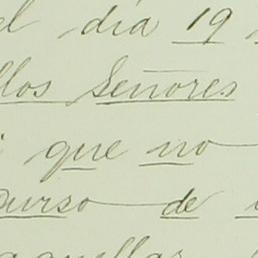 el día 19
llos Señores
que no
curso de
aquellas